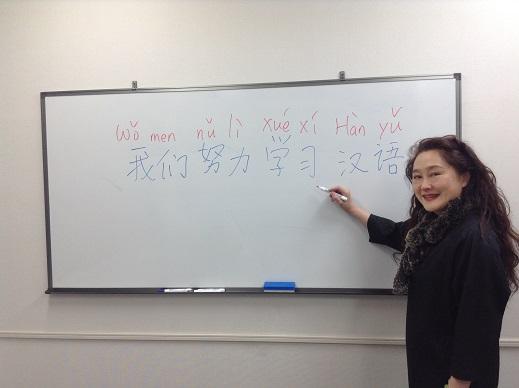 wǒ men nǔ lì xué xí Hàn yǔ
我们努力学习汉语